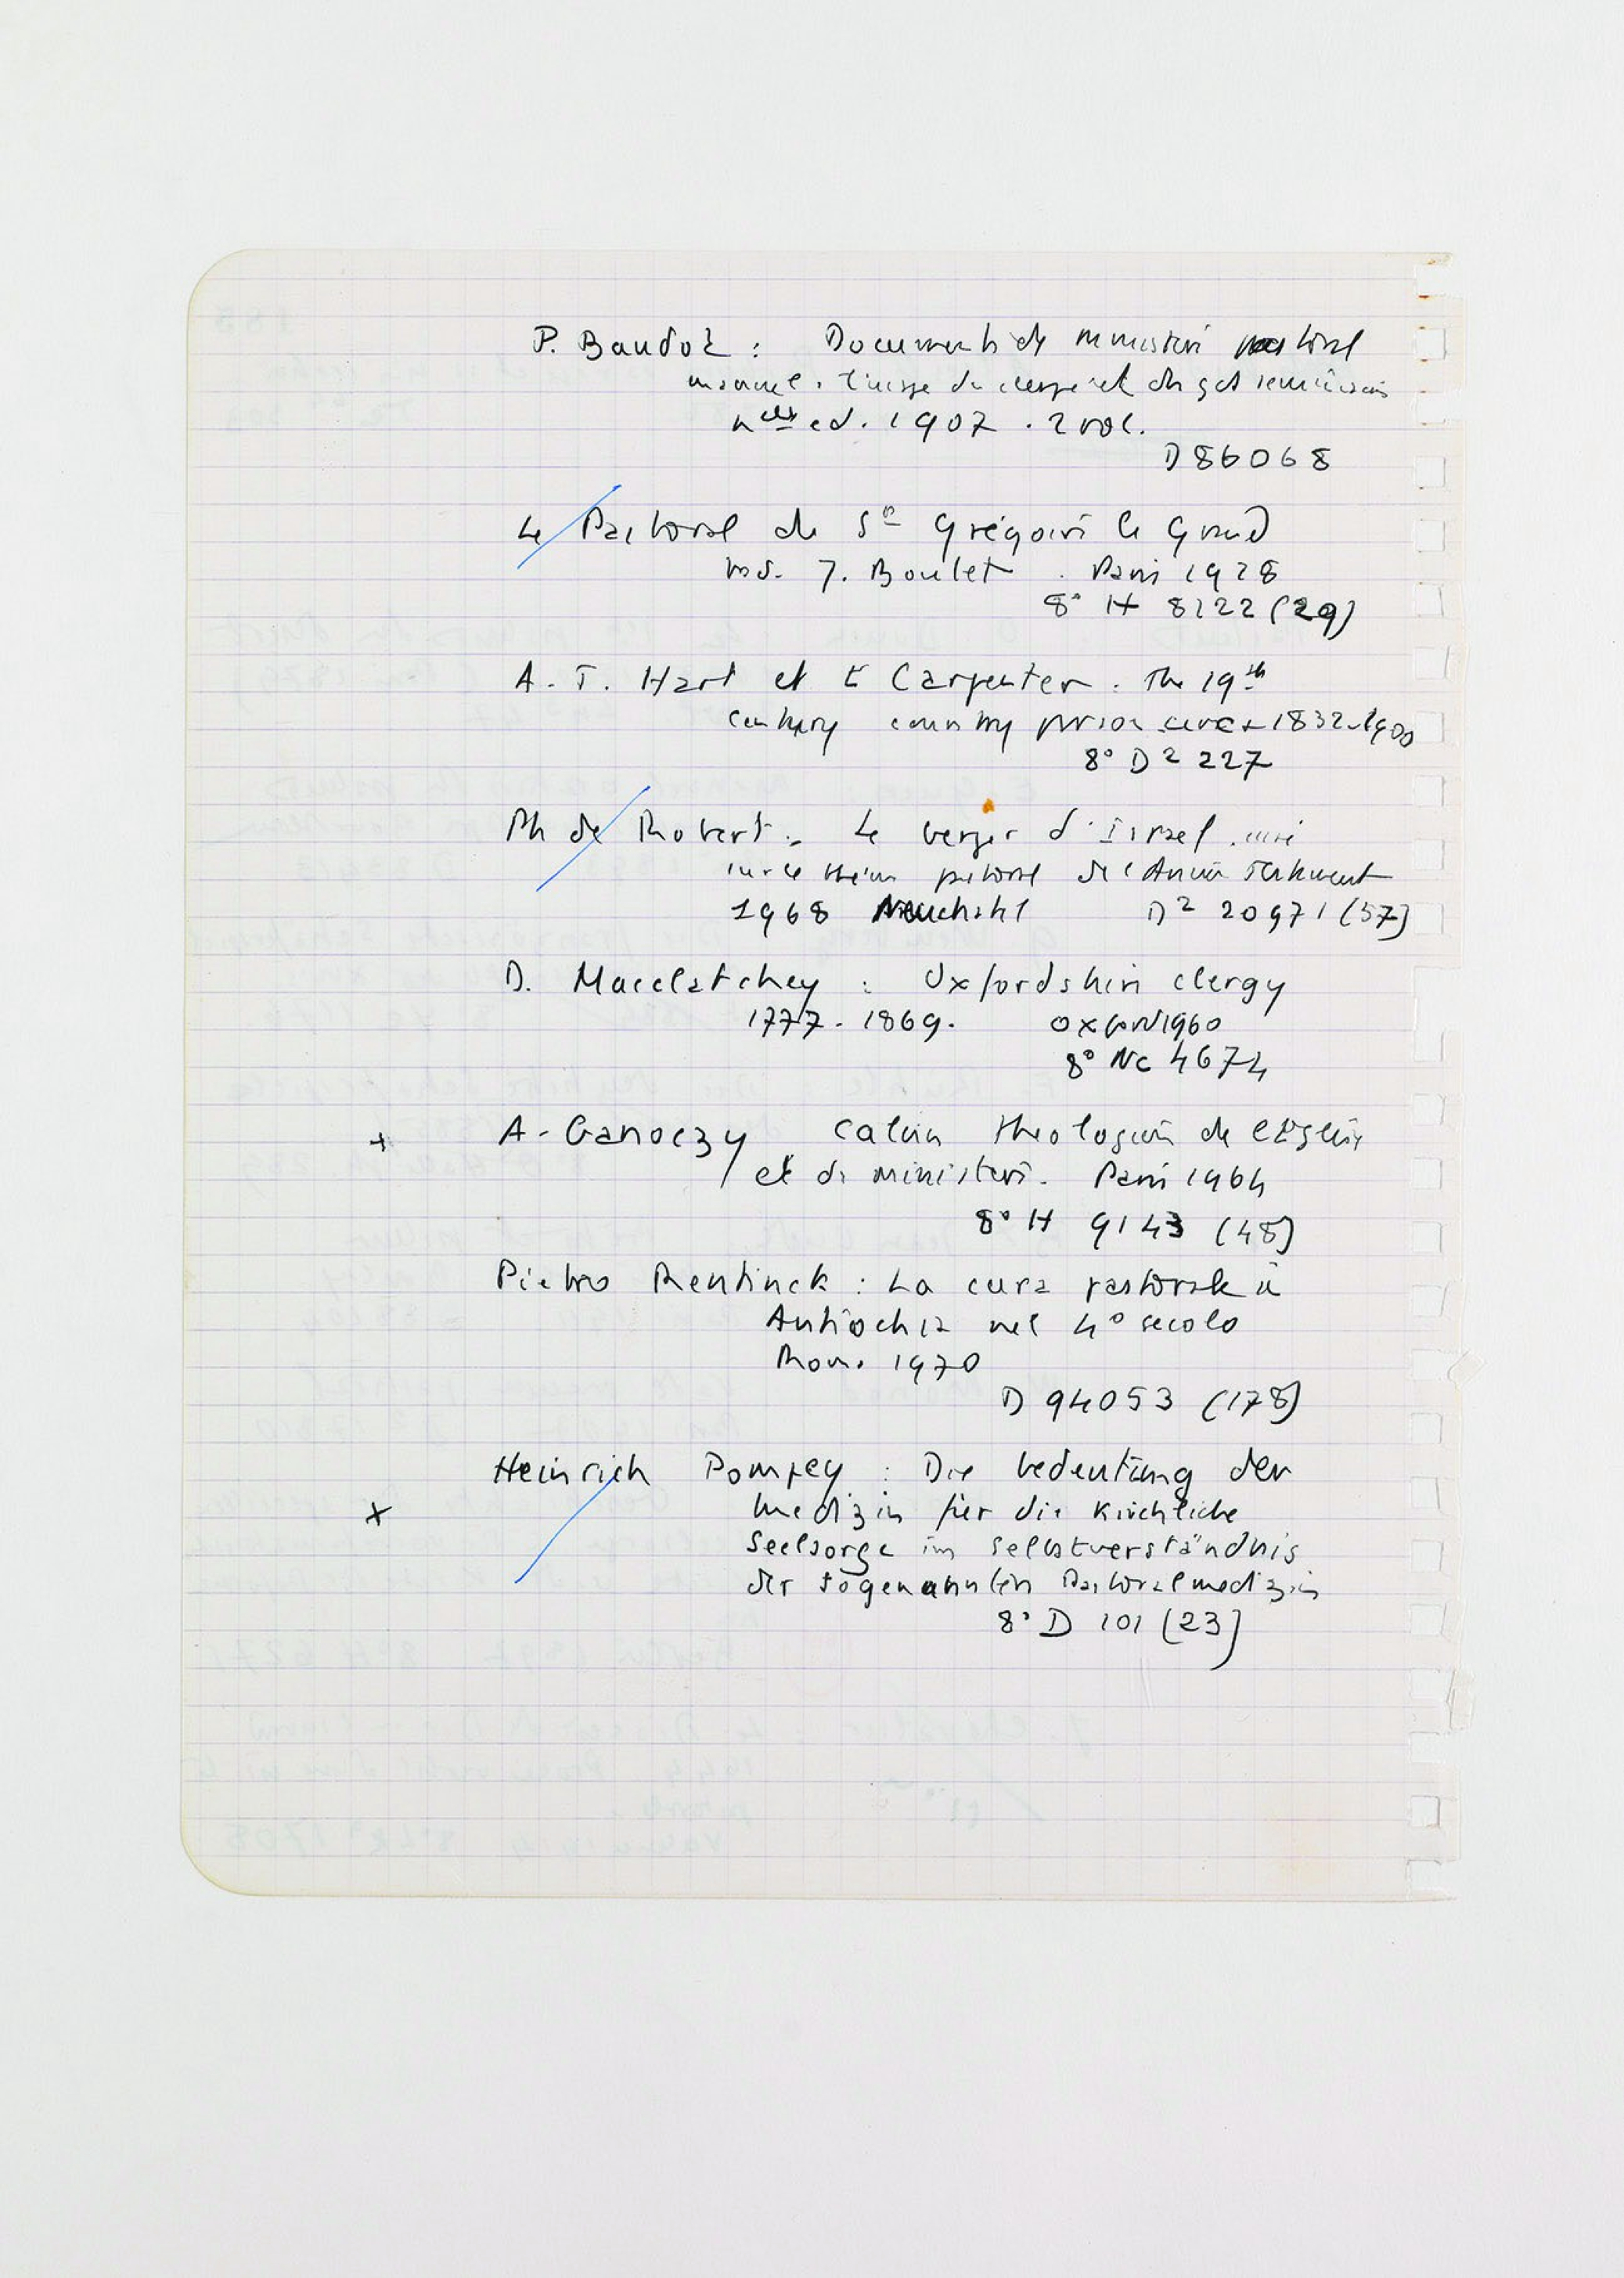 P. Baudot : Documents de ministère pastoral
manuel à l'usage du clergé et des gds séminaires
nelle ed. 1907 . 2 vol.
D 86068
Le Pastoral de St Grégoire le Grand
trad. J. Boulet . Paris 1928
8° H 8122 (29)
A. T. Hart et E Carpenter : The 19th
century country 1832-1900
8° D2 227
Ph de Robert : Le berger d'Israel .
sur le thème pastoral de l'Ancien Testament
1968 Neuchatel D2 20971 (57)
D. Macclatchey : Oxfordshire clergy
1777 - 1869. Oxford 1960
8° Nc 4674
+ A. Ganoczy Calvin theologien de l'Eglise
et du ministère. Paris 1964
8° H 9143 (48)
Pietro Rentinck : La cura pastorale in
Antiochia nel 4° secolo
Rome 1970
D 94053 (178)
Heinrich Pompey : Die bedeutung der
+ medizin für die Kirchliche
Seelsorge im selbstverständnis
der sogenannten Pastoralmedizin
8° D 101 (23)